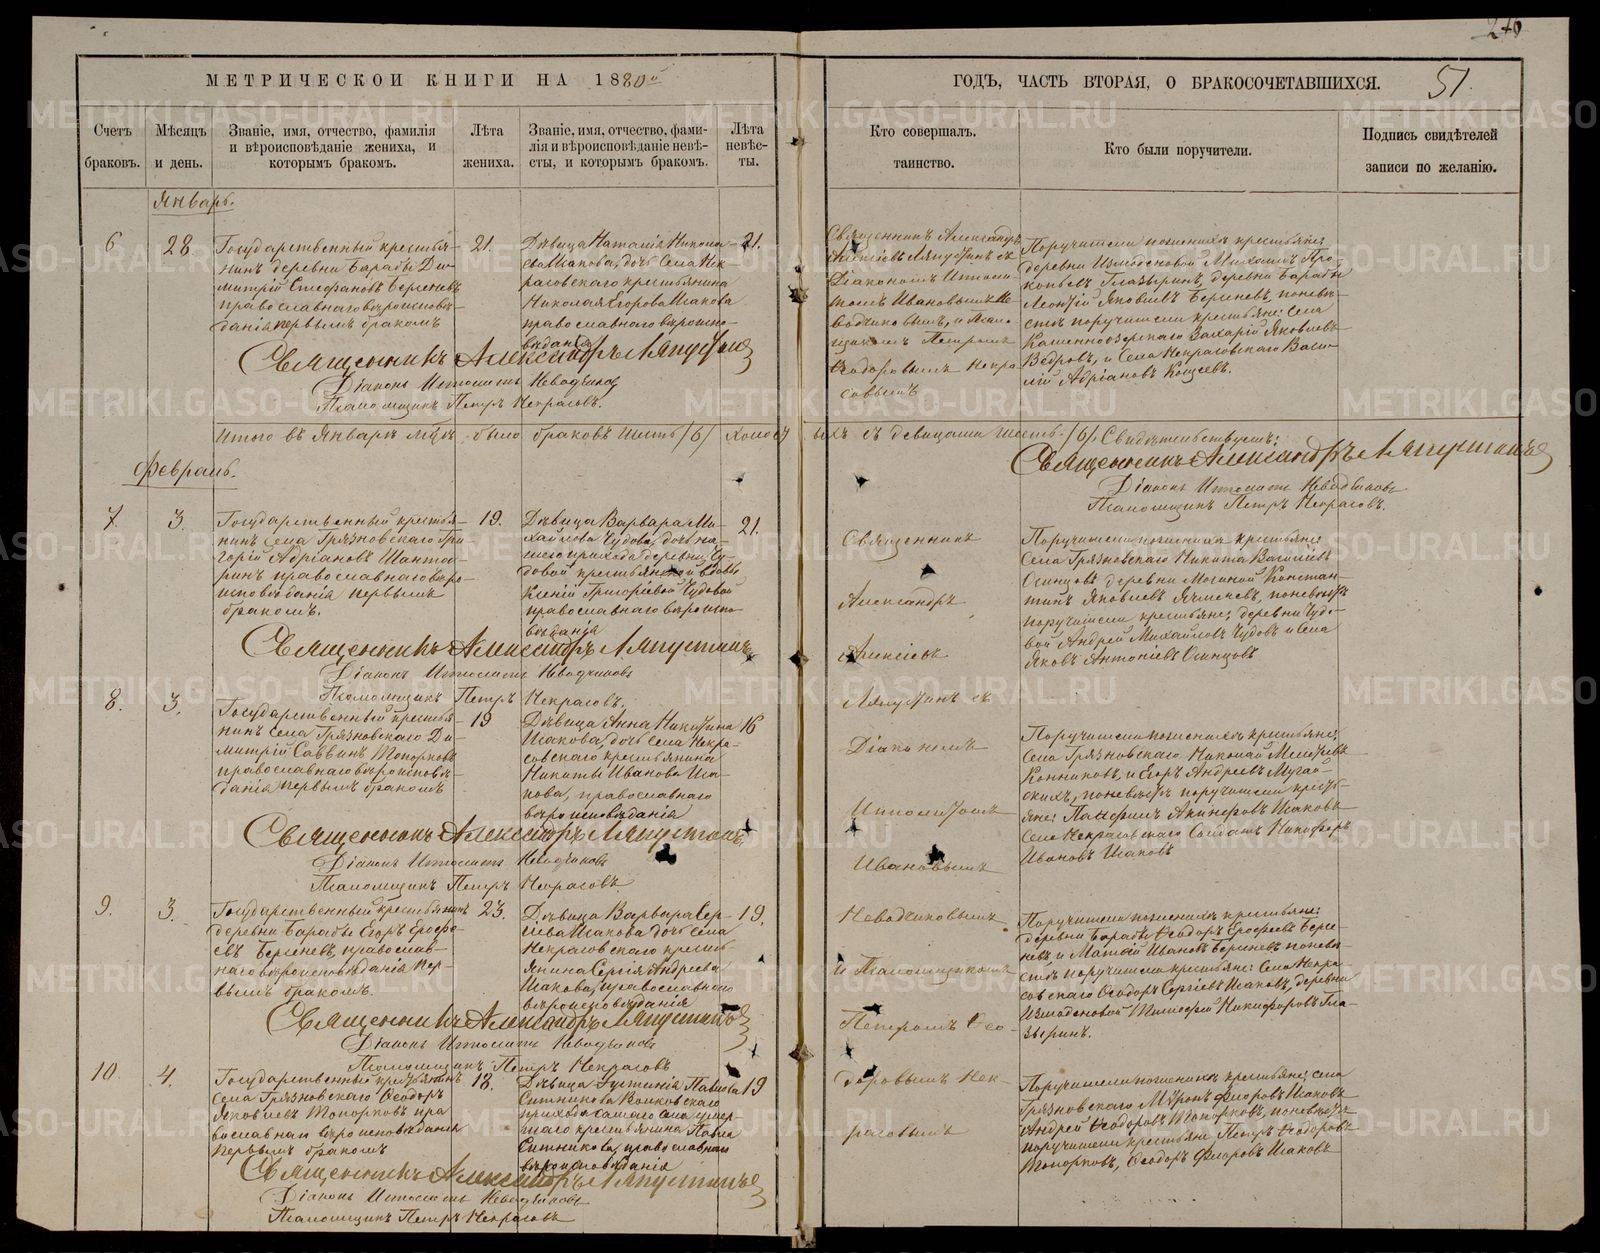 240
МЕТРИЧЕСКОЙ КНИГИ НА 1880й
ГОДЪ, ЧАСТЬ ВТОРАЯ, О БРАКОСОЧЕТАВШИХСЯ.
51.
Счетъ
браковъ.
Мѣсяцъ
и день.
Званіе, имя, отчество, фамилія
и вѣроисповѣданіе жениха, и
которымъ бракомъ.
Лѣта
жениха.
Званіе, имя, отчество, фами-
лія и вѣроисповѣданіе невѣ-
сты, и которымъ бракомъ.
Лѣта
невѣс-
ты.
Кто совершалъ.
таинство.
Кто были поручители.
Подпись свидѣтелей
записи по желанію.
Январь.
6
28
Государственный крестья-
нинъ деревни Барабы Ди-
митрій Стефановъ Берсеневъ
православнаго вѣроисповѣ-
данія первымъ бракомъ
21.
Дѣвица Наталія Никола-
ева Исакова, дочь села Нек-
расовскаго крестьянина
Николая Егорова Исакова
православнаго вѣроиспо-
вѣданія
21.
Священникъ Александръ
Алексіевъ Ляпустинъ съ
Діакономъ Ипполи-
томъ Ивановымъ Не-
водчиковымъ, и Псало-
мщикомъ Петромъ
Ѳеодоровымъ Некра-
совымъ
Поручители по женихѣ крестьяне:
деревни Измоденовой Михаилъ Про-
копьевъ Глазыринъ, деревни Барабы
Леонтій Яковлевъ Берсеневъ, по невѣ-
стѣ поручители крестьяне: Села
Каменноозерскаго Захарій Яковлевъ
Ведровъ, и Села Некрасовскаго Васи-
лій Адріановъ Кощеевъ.
Священникъ Александръ Ляпустинъ
Діаконъ Ипполитъ Неводчиковъ
Псаломщикъ Петръ Некрасовъ.
Итого въ Январѣ мцѣ было браковъ шесть /6/ холосты
ыхъ съ дѣвицами шесть /6/. Свидѣтельствуемъ:
Священникъ Александръ Ляпустинъ
Діаконъ Ипполитъ Неводчиковъ
Псаломщикъ Петръ Некрасовъ.
Февраль.
7.
3.
Государственный крестья-
нинъ Села Грязновскаго Гри-
горій Адріановъ Шанта-
ринъ православнаго вѣро-
исповѣданія первымъ
бракомъ.
19.
Дѣвица Варвара Ми-
хайлова Чудова, дочь на-
шего прихода деревни Чу-
довой крестьянской вдовы
Ксеніи Григорьевой Чудовой
православнаго вѣроиспо-
вѣданія
21.
Священникъ
Александръ
Алексіевъ
Ляпустинъ съ
Діакономъ
Ипполитомъ
Ивановымъ
Неводчиковымъ
и Псаломщикомъ
Петромъ Ѳео-
доровымъ Нек-
расовымъ
Поручители по женихѣ крестьяне:
Села Грязновскаго Никита Василіевъ
Осинцовъ деревни Мосиной Констан-
тинъ Яковлевъ Ячменевъ, по невѣстѣ
поручители крестьяне; деревни Чудо-
вой Андрей Михайловъ Чудовъ и Села
Яковъ Антоніевъ Осинцовъ
Священникъ Александръ Ляпустинъ
Діаконъ Ипполитъ Неводчиковъ
Псаломщикъ Петръ Некрасовъ.
8.
3.
Государственный крестья-
нинъ Села Грязновскаго Ди-
митрій Саввинъ Топорковъ
православнаго вѣроисповѣ-
данія первымъ бракомъ
19
Дѣвица Анна Никитина
Исакова, дочь Села Некра-
совскаго крестьянина
Никиты Иванова Иса-
кова, православнаго
вѣроисповѣданія
16
Поручители по женихѣ крестьяне;
Села Грязновскаго Николай
Конниковъ, и Егоръ Андреевъ Мугай-
скихъ, по невѣстѣ поручители кресть-
яне: Панфилъ Акинфовъ Исаковъ
Села Некрасовскаго Солдатъ Никифоръ
Ивановъ Исаковъ
Священникъ Александръ Ляпустинъ
Діаконъ Ипполитъ Неводчиковъ
Псаломщикъ Петръ Некрасовъ.
9.
3.
Государственный крестьянинъ
деревни Барабы Егоръ Ерофе-
евъ Берсеневъ, православ-
наго вѣроисповѣданія пер-
вымъ бракомъ.
23.
Дѣвица Варвара Сер-
гіева Исакова дочь Села
Некрасовскаго кресть-
янина Сергія Андреева
Исакова, православнаго
вѣроисповѣданія
19.
Поручители по женихѣ крестьяне:
деревни Барабы Ѳеодоръ Ерофеевъ Берсе-
невъ, и Матвій Ивановъ Берсеневъ по невѣ-
стѣ поручители крестьяне: Села Некра-
совскаго Ѳеодоръ Сергіевъ Исаковъ, деревни
Измоденовой Тимофей Никифоровъ Гла-
зыринъ.
Священникъ Александръ Ляпустинъ
Діаконъ Ипполитъ Неводчиковъ
Псаломщикъ Петръ Некрасовъ
10.
4.
Государственный крестьянинъ
Села Грязновскаго Ѳеодоръ
Яковлевъ Топорковъ пра-
вославнаго вѣроисповѣданія
первымъ бракомъ
18.
Дѣвица Устинія Павлова
Ситникова Волковскаго
прихода самаго Села умер-
шаго крестьянина Павла
Ситникова, православнаго
вѣроисповѣданія
19
Поручители по женихѣ крестьяне; села
Грязновскаго Миронъ Флоровъ Исаковъ
Андрей Ѳеодоровъ Топорковъ, по невѣстѣ
поручители крестьяне Петръ Ѳеодоровъ
Топорковъ, Ѳеодоръ Флоровъ Исаковъ
Священникъ Александръ Ляпустинъ
Діаконъ Ипполитъ Неводчиковъ
Псаломщикъ Петръ Некрасовъ
METRIKI.GASO-URAL.RU